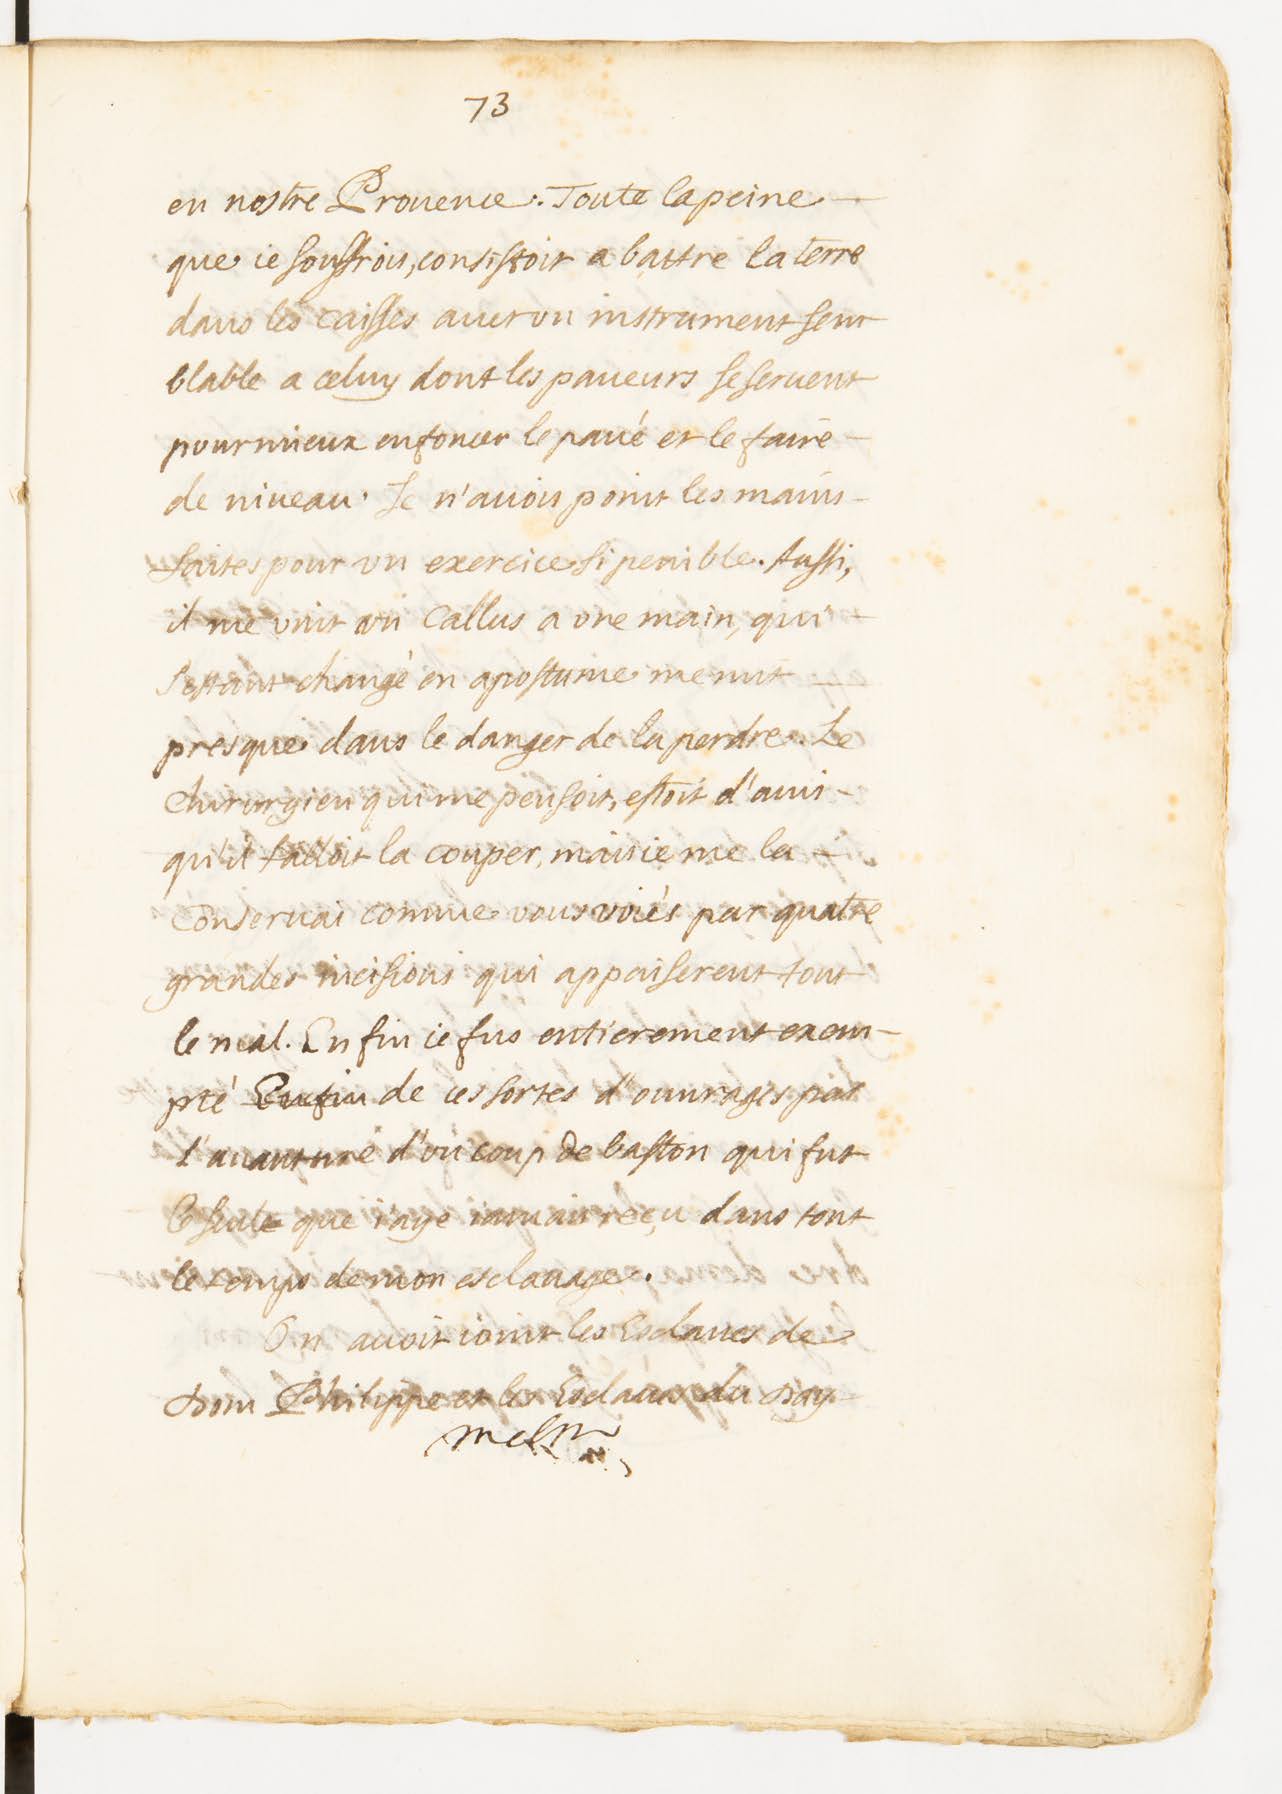 73
en nostre Prouence. Toute la peine
que ie souffrois, consistoit a battre la terre
dans les caisses auec vn instrument sem
blable a celuy dont les paueurs se seruent
pour mieux enfoncer le paué et le faire
de niveau. Je n'auois point les mains
faites pour vn exercice si penible. Aussi,
il me vint vn callus a vne main, qui
s'estant changé en apostume me mit
presque dans le danger de la perdre. Le
chirurgien qui me pensoit, estoit d'auis
qu'il falloit la couper, mais ie me la
conseruai comme vous voiés par quatre
grandes incisions qui appaiserent tout
le mal. Enfin ie fus entierement exem-
pté Enfin de ces sortes d'ouurages par
l'auanture d'vn coup de baston qui fut
le seule que i'aye iamais reçu dans tout
le temps de mon esclauage.
On auoit ioint les Esclaues de
Dom Philippe et les Esclaues du Day